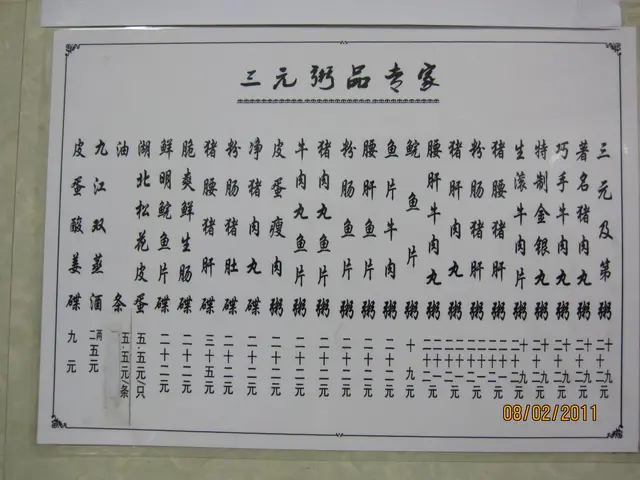 三元粥品专家
三元及第粥
著名猪肉丸粥
巧手牛肉丸粥
特制金银丸粥
生滚牛肉片粥
猪腰猪肝粥
粉肠猪肝粥
猪肝肉丸粥
腰肝牛肉丸粥
鲩鱼片粥 十九元
鱼片牛肉粥 二十二元
腰肝鱼片粥 二十二元
粉肠鱼片粥 二十二元
猪肉丸鱼片粥 二十二元
牛肉丸鱼片粥 二十二元
皮蛋瘦肉粥 二十元
净猪肉丸碟 二十二元
粉肠猪肚碟 二十二元
猪腰猪肝碟 三十五元
脆爽鲜生肠碟 二十二元
鲜明鲩鱼片碟 二十二元
湖北松花皮蛋 五.五元/只
油条 五.五元/条
九江双蒸酒 二两五元
皮蛋酸姜碟 九元
08/02/2011